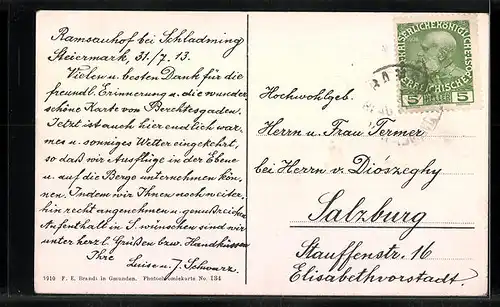 Ramsauhof bei Schladming
Steiermark, 31./7. 13.
Vielen u. besten Dank für die
freundl. Erinnerung u. die wunder-
schöne Karte von Berchtesgaden.
Jetzt ist auch hier endlich war-
mes u. sonniges Wetter eingekehrt,
so daß wir Ausflüge in der Ebene
u. auf die Berge unternehmen kön-
nen. Indem wir Ihnen noch weiter-
hin recht angenehmen u. genußreichen
Aufenthalt in S. wünschen sind wir
unter herzl. Grüßen bzw. Handküssen
Ihre
Luise u. J. Schwarz.
5910 F. E. Brandt in Gmunden. Photochromiekarte No. 134
KAISERLICHE KÖNIGLICHE
ÖSTERREICHISCHE POST
5 5
RAMS
Hochwohlgeb.
Herrn u. Frau Termer
bei Herrn v. Diószeghy
Salzburg
Stauffenstr. 16
Elisabethvorstadt.